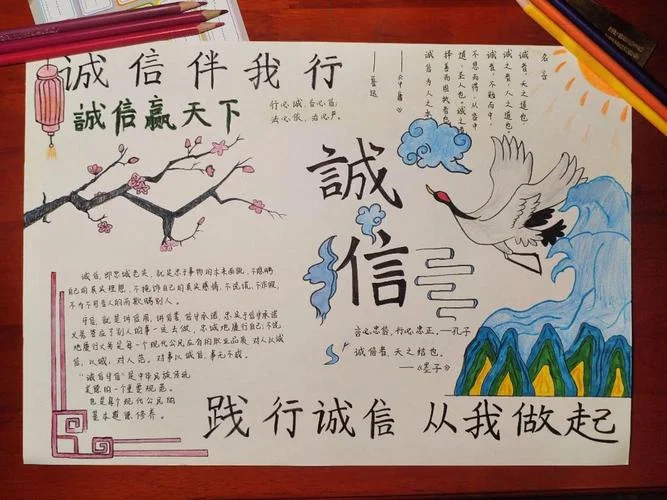 诚信伴我行
誠信赢天下
行必诚,言必信;
名言
诚者,天之道也;
诚之者,人之道也。
诚者,不勉而中,
不思而得,从容中
道,圣人也。诚之者,
择善而固执者也
诚信为人之本
——《中庸》
——鲁迅
誠
信
言必忠信,行必忠正。—孔子
诚信者,天之结也。
——《墨子》
诚信,即忠诚老实,就是忠于事物的本来面貌,不隐瞒
自己的真实理想,不掩饰自己的真实感情,不说谎,不作假,
不为不可告人的而欺瞒别人。
守信,就是讲信用,讲信誉,信守承诺,忠实于信守承诺
义务答应了别人的事一定去做,忠诚地履行自己
地履行义务是每一个现代公民应有的职业品质,对人以诚
信,以诚,对人范。对事以诚信,事无不成。
"诚实守信"是中华民族传统
美德的一个重要规范。
也是每个现代公民的
基本道德修养。
践行诚信 从我做起